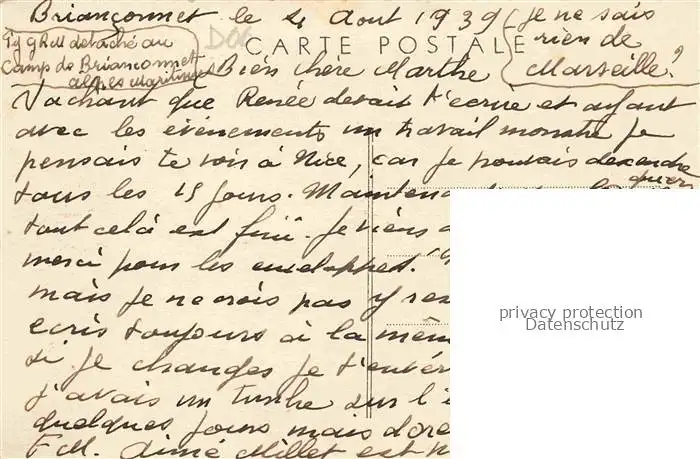 Briançonnet le 4 Aout 1939
je ne sais
rien de
Marseille?
détaché au
Camp de Briançonnet
alpes Maritimes
CARTE POSTALE
Bien chère Marthe
Sachant que Renée devait t'écrire et ayant
avec les évènements un travail monstre je
pensais te voir à Nice, car je pouvais descendre
tous les 15 jours. Maintenant
tout celà est fini. Je viens
merci pour les enveloppes.
mais je ne crois pas y res
ecris toujours à la mêm
si je changes je t'enver
j'avais un sur l'
quelques jours mais
F. M. Aimé Millet est
privacy protection
Datenschutz